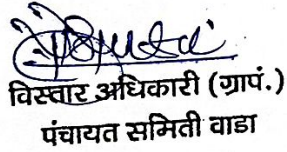 विस्तार अधिकारी (ग्रापं.)
पंचायत समिती वाडा